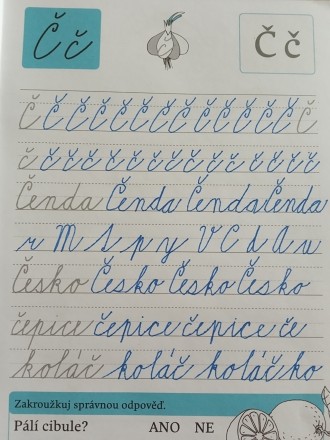 Č č
Č č
Č Č Č Č Č Č Č Č Č Č Č Č
č č č č č č č č č č č č č č
Čenda Čenda Čenda Čenda
r M A p y V C d A u
Česko Česko Česko Česko
čepice čepice čepice če
koláč koláč koláč ko
Zakroužkuj správnou odpověď.
Pálí cibule? ANO NE